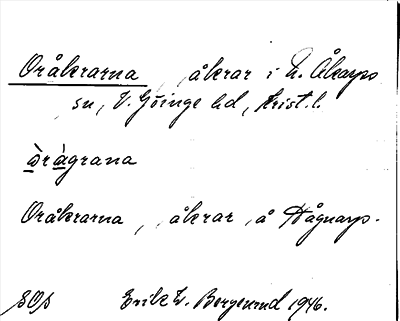 Oråkrarna , åkrar i N. Åkarps
sn, V. Göinge hd, Krist. l.
ὼrὰgrana
Oråkrarna , åkrar , å Hågnarp.
SOS Erik W. Bergelund 1946.